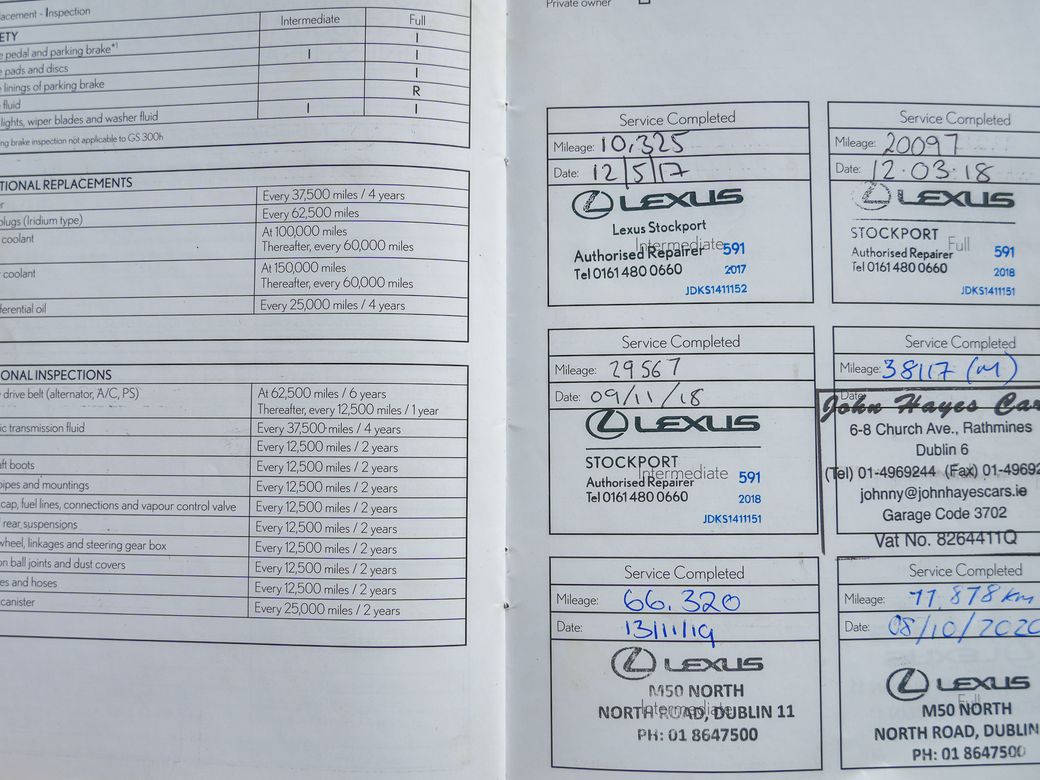 lacement - Inspection
Intermediate Full
ETY I
e pedal and parking brake*¹ I I
e pads and discs I
e linings of parking brake R
e fluid I I
lights, wiper blades and washer fluid
ng brake inspection not applicable to GS 300h
TIONAL REPLACEMENTS
er Every 37,500 miles / 4 years
plugs (Iridium type) Every 62,500 miles
coolant At 100,000 miles
Thereafter, every 60,000 miles
coolant At 150,000 miles
Thereafter, every 60,000 miles
ferential oil Every 25,000 miles / 4 years
ONAL INSPECTIONS
drive belt (alternator, A/C, PS) At 62,500 miles / 6 years
Thereafter, every 12,500 miles / 1 year
ic transmission fluid Every 37,500 miles / 4 years
Every 12,500 miles / 2 years
aft boots Every 12,500 miles / 2 years
pipes and mountings Every 12,500 miles / 2 years
cap, fuel lines, connections and vapour control valve Every 12,500 miles / 2 years
rear suspensions Every 12,500 miles / 2 years
wheel, linkages and steering gear box Every 12,500 miles / 2 years
on ball joints and dust covers Every 12,500 miles / 2 years
es and hoses Every 12,500 miles / 2 years
canister Every 25,000 miles / 2 years
Private owner
Service Completed
Mileage: 10,325
Date: 12/5/17
LEXUS
Lexus Stockport
Intermediate
Authorised Repairer 591
Tel 0161 480 0660 2017
JDKS1411152
Service Completed
Mileage: 20097
Date: 12.03.18
LEXUS
STOCKPORT Full
Authorised Repairer 591
Tel 0161 480 0660 2018
JDKS1411151
Service Completed
Mileage: 29567
Date: 09/11/18
LEXUS
STOCKPORT
Intermediate
Authorised Repairer 591
Tel 0161 480 0660 2018
JDKS1411151
Service Completed
Mileage: 38117 (M)
Date:
John Hayes Car
6-8 Church Ave., Rathmines
Dublin 6
(Tel) 01-4969244 (Fax) 01-4969
johnny@johnhayescars.ie
Garage Code 3702
Vat No. 8264411Q
Service Completed
Mileage: 66.320
Date: 13/11/19
LEXUS
M50 NORTH
Intermediate
NORTH ROAD, DUBLIN 11
PH: 01 8647500
Service Completed
Mileage: 77.878 km
Date: 08/10/2020
LEXUS
Full
M50 NORTH
NORTH ROAD, DUBLIN
PH: 01 8647500